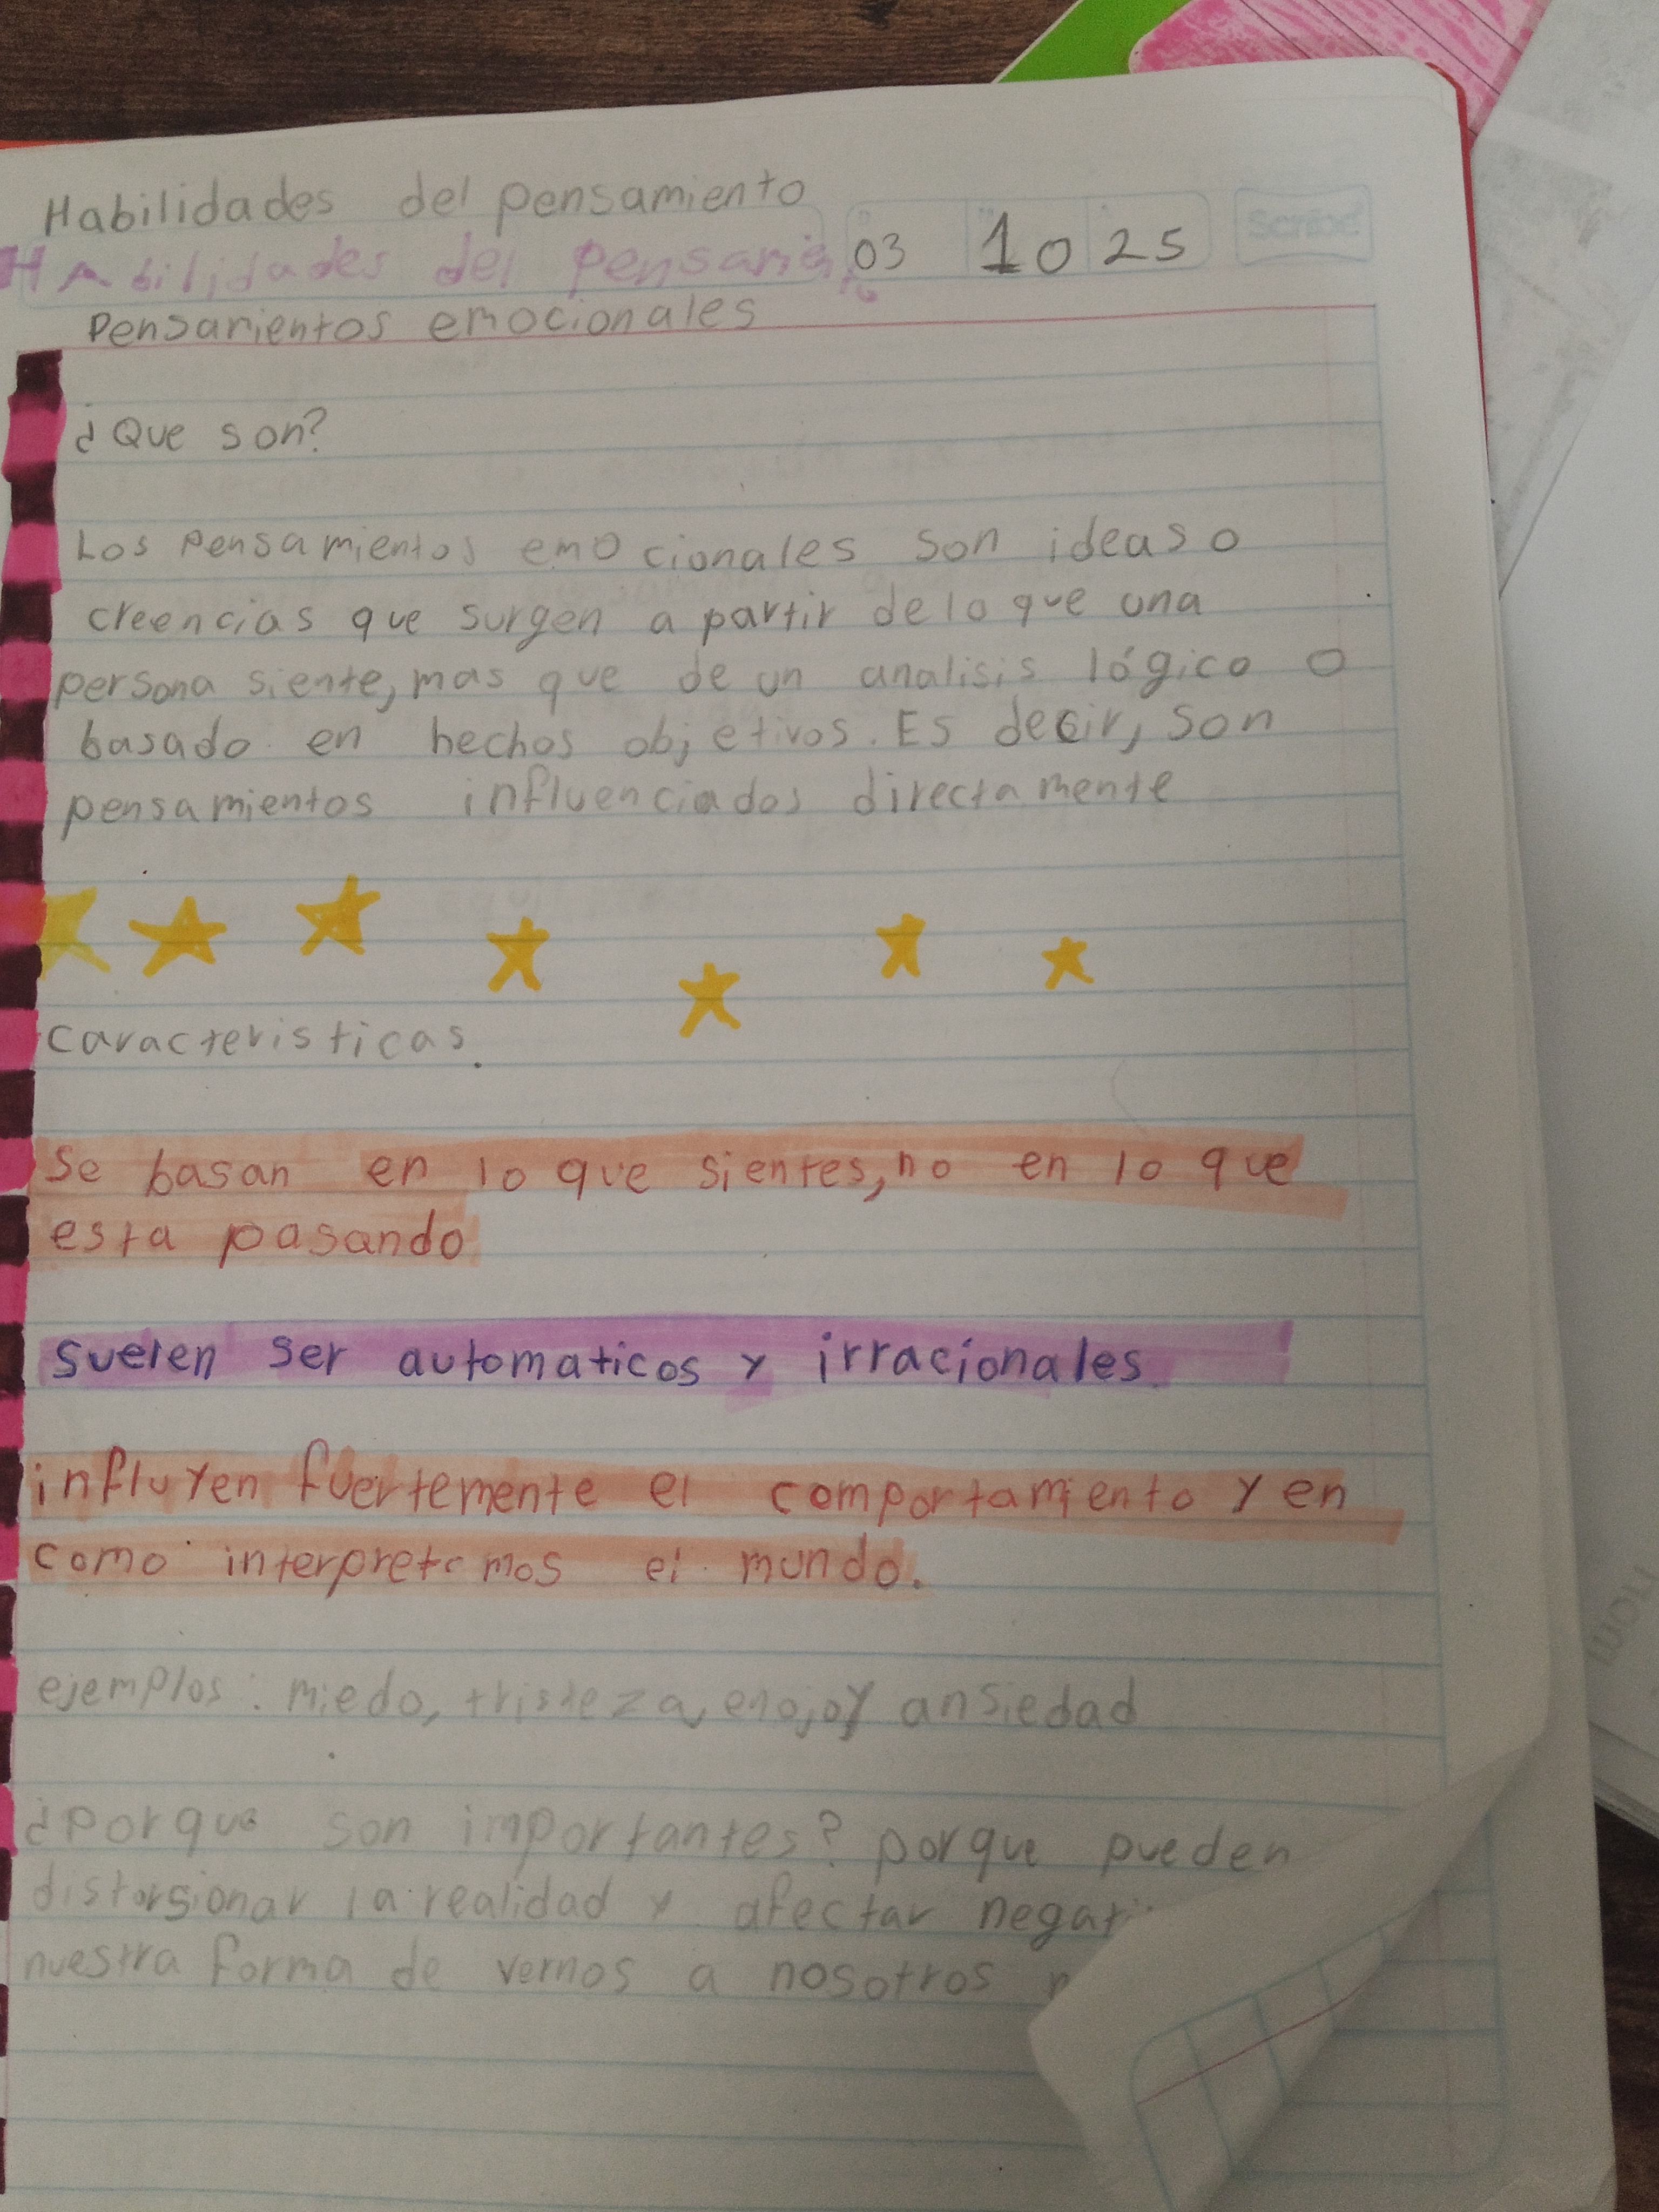 Habilidades del pensamiento
HAbilidades del pensamiento
03 10 25
Scribe
Pensamientos emocionales
¿Que son?
Los pensamientos emocionales son ideas o
creencias que surgen a partir de lo que una
persona siente, mas que de un analisis lógico o
basado en hechos objetivos. Es decir, son
pensamientos influenciados directamente
caracteristicas.
Se basan en lo que sientes, no en lo que
esta pasando
suelen ser automaticos y irracionales.
influyen fuertemente el comportamiento y en
como interpretamos el mundo.
ejemplos: miedo, tristeza, enojo y ansiedad
¿Porque son importantes? porque pueden
distorsionar la realidad y afectar
nuestra forma de vernos a nosotros